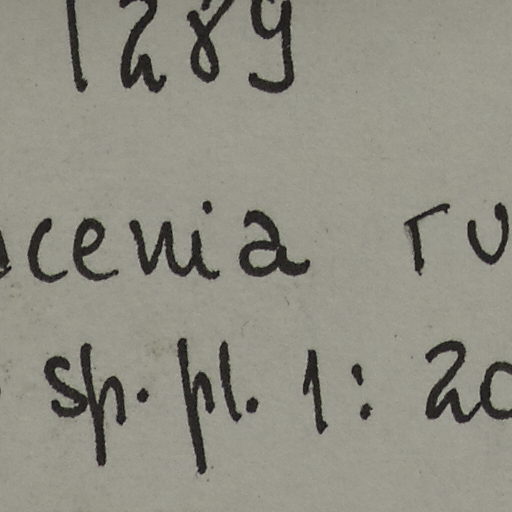 1289
cenia ru
sp. pl. 1: 20